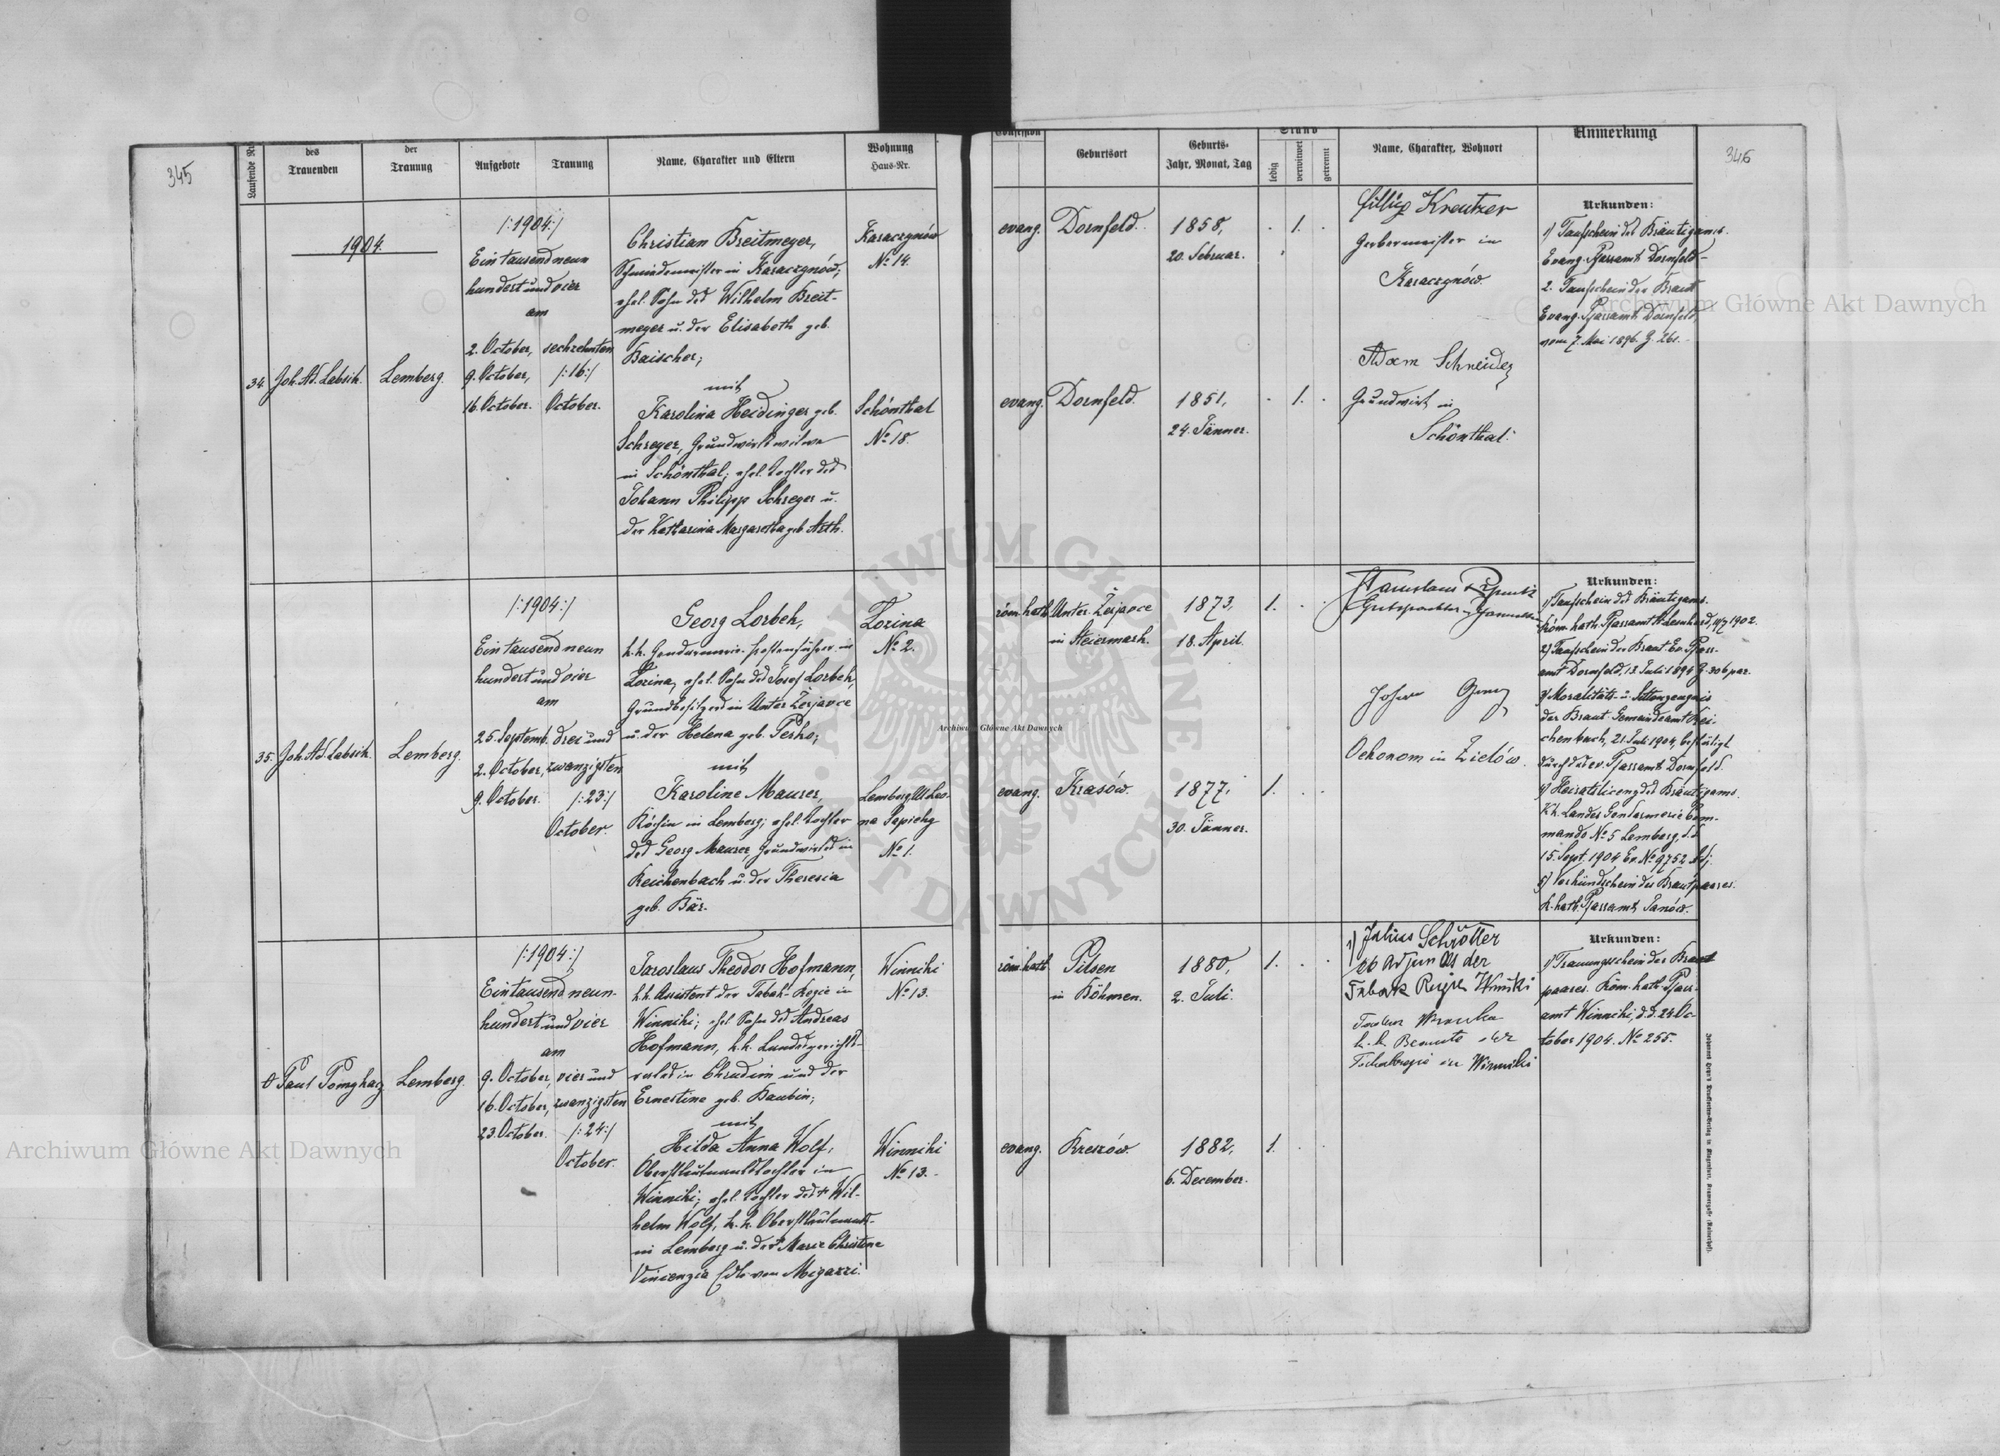 345
Laufende No.
des
Trauenden
der
Trauung
Aufgebote
Trauung
Name, Charakter und Eltern
Wohnung
Haus-Nr.
1904.
34.
Joh. Ad. Labsik.
Lemberg.
/:1904:/
Ein tausend neun
hundert und vier
am
2. October,
9. October,
16. October.
sechzehnten
/:16:/
October.
Christian Breitmeyer,
Schmiedemeister in Karaczynów,
ehel. Sohn des Wilhelm Breit-
meyer u. der Elisabeth geb.
Baischer;
mit
Karolina Heidinger geb.
Schreyer, Grundwirtswitwe
in Schönthal; ehel. Tochter des
Johann Philipp Schreyer u.
der Katharina Margaretha geb. Arth.
Karaczynów
No. 14.
Schönthal
No. 18.
35.
Joh. Ad. Labsik.
Lemberg.
/:1904:/
Ein tausend neun
hundert und vier
am
25. Septemb.
2. October,
9. October.
drei und
zwanzigsten
/:23:/
October.
Georg Lorbek,
k.k. Gendarmerie-Postenführer in
Lozina, ehel. Sohn des Josef Lorbek,
Grundbesitzers in Unter Zerjavce
u. der Helena geb. Perko;
mit
Karoline Maurer,
Köchin in Lemberg; ehel. Tochter
des Georg Maurer Grundwirtes in
Reichenbach u. der Theresia
geb. Bär.
Lozina
No. 2.
Lemberg, Ul. Leo-
na Sapiehy
No. 1.
0
Paul Pomykacz
Lemberg.
/:1904:/
Ein tausend neun-
hundert und vier
am
9. October,
16. October,
23. October.
vier und
zwanzigsten
/:24:/
October.
Jaroslaus Theodor Hofmann,
k.k. Assistent der Tabak-Regie in
Winniki; ehel. Sohn des Andreas
Hofmann, k.k. Landesgerichts-
rates in Chrudim und der
Ernestine geb. Baubin;
mit
Hilda Anna Wolf,
Oberstleutnantstochter in
Winniki; ehel. Tochter des + Wil-
helm Wolf, k.k. Oberstleutnant-
in Lemberg u. der + Marie Christine
Vincenzia Edle von Migazzi.
Winniki
No. 13.
Winniki
No. 13.
Confession
Geburtsort
Geburts-
Jahr, Monat, Tag
Stand
ledig
verwitwet
getrennt
Name, Charakter, Wohnort
Anmerkung
346
evang.
Dornfeld.
1858,
20. Februar.
1.
Fillipp Kreutzer
Gerbermeister in
Karaczynów.
Urkunden:
1) Taufschein des Bräutigams.
Evang. Pfarramt Dornfeld.
2. Taufschein der Braut
Evang. Pfarramt Dornfeld,
vom 7. Mai 1896. Z. 261.
evang.
Dornfeld.
1851,
24. Jänner.
1.
Adam Schneider
Grundwirt in
Schönthal.
röm. kath.
Unter Zerjavce
in Steiermark.
1873,
18. April.
1.
Stanislaus
Gutspächter
Urkunden:
1) Taufschein des Bräutigams.
Röm. kath. Pfarramt St. Leonhard, 1902.
2) Taufschein der Braut. Ev. Pfarr-
amt Dornfeld, 13. Juli 1894 Z. 306 par.
3) Moralitäts- u. Sittenzeugnis
der Braut. Gemeindeamt Rei-
chenbach, 21. Juli 1904, bestätigt
durch das ev. Pfarramt Dornfeld.
4) Heiratslicenz des Bräutigams.
K.k. Landes Gendarmerie Com-
mando No. 5 Lemberg, d.d.
15. Sept. 1904 Ex. No. 9752 Adj.
5) Verkündschein des Brautpaares.
R. kath. Pfarramt Janów.
evang.
Krasów.
1877,
30. Jänner.
1.
Oekonom in Zielów.
röm. kath.
Pilsen
in Böhmen.
1880,
2. Juli.
1.
1) Julius Schrötter
Adjunkt der
Tabak Regie Winniki
k.k. Beamte der
Tabakregie in Winniki
Urkunden:
1) Trauungsschein des Braut-
paares. Röm. kath. Pfarr-
amt Winniki, d.d. 24 Oc-
tober 1904. No. 255.
evang.
Kreszów.
1882,
6. December.
1.
Archiwum Główne Akt Dawnych
Archiwum Główne Akt Dawnych
Archiwum Główne Akt Dawnych
ARCHIWUM GŁÓWNE AKT DAWNYCH